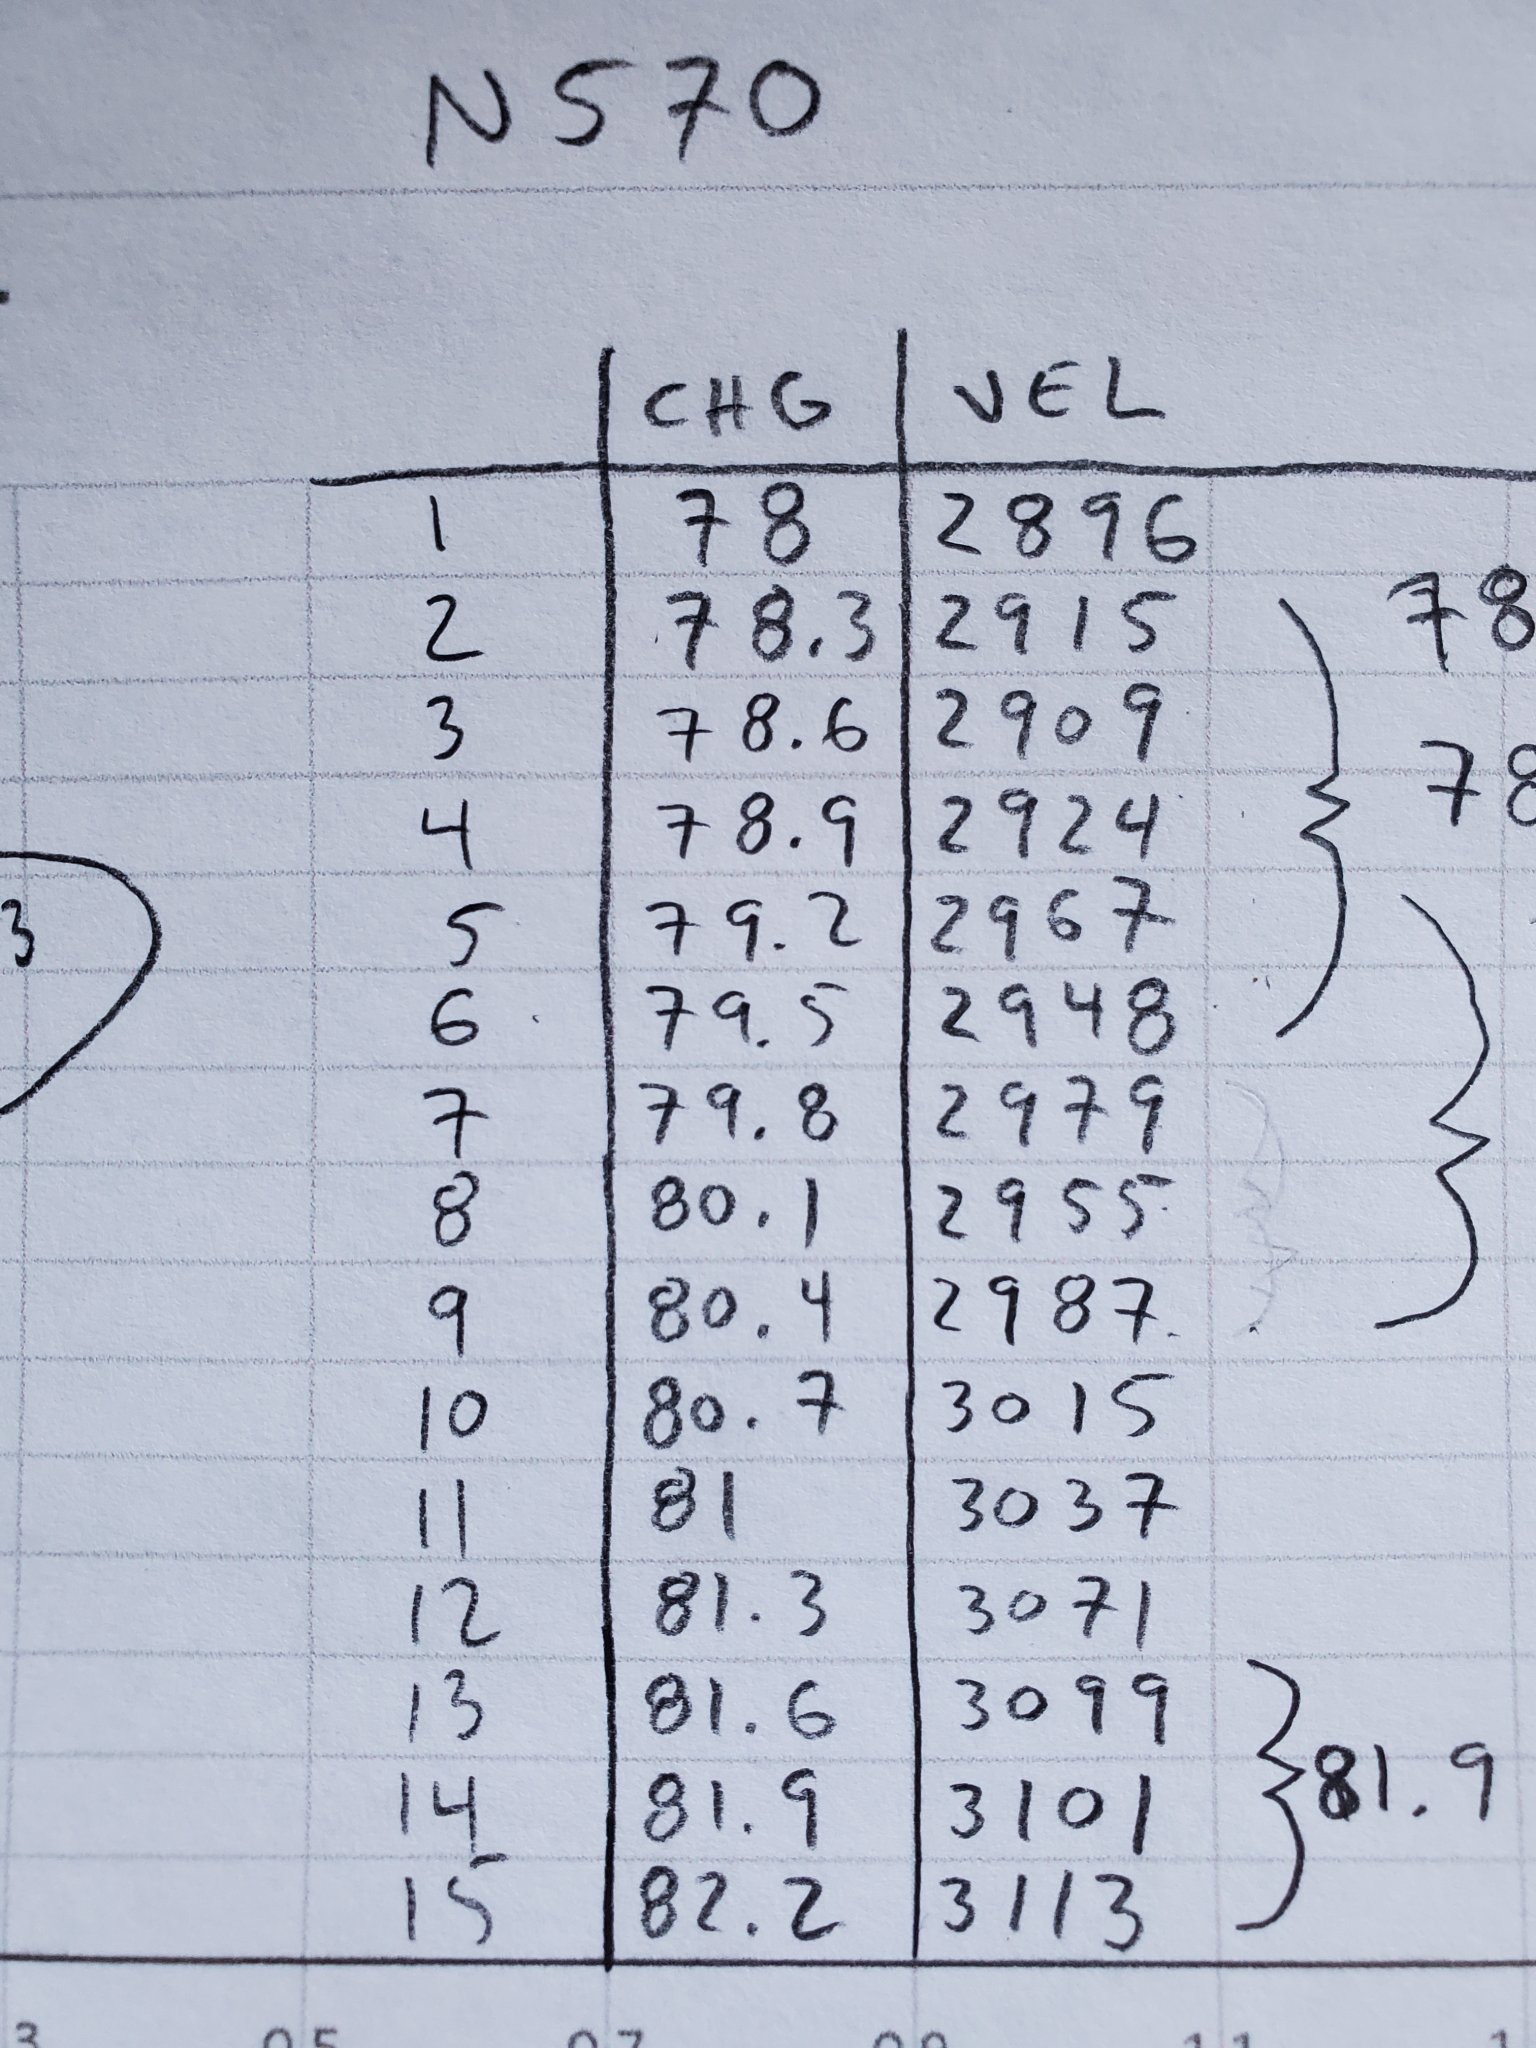 N570
CHG VEL
1 78 2896
2 78.3 2915 78
3 78.6 2909
78
4 78.9 2924
3 5 79.2 2967
6 79.5 2948
7 79.8 2979
8 80.1 2955
9 80.4 2987
10 80.7 3015
11 81 3037
12 81.3 3071
13 81.6 3099
14 81.9 3101 81.9
15 82.2 3113
3 0.5 0.7 0.9 1.1 1